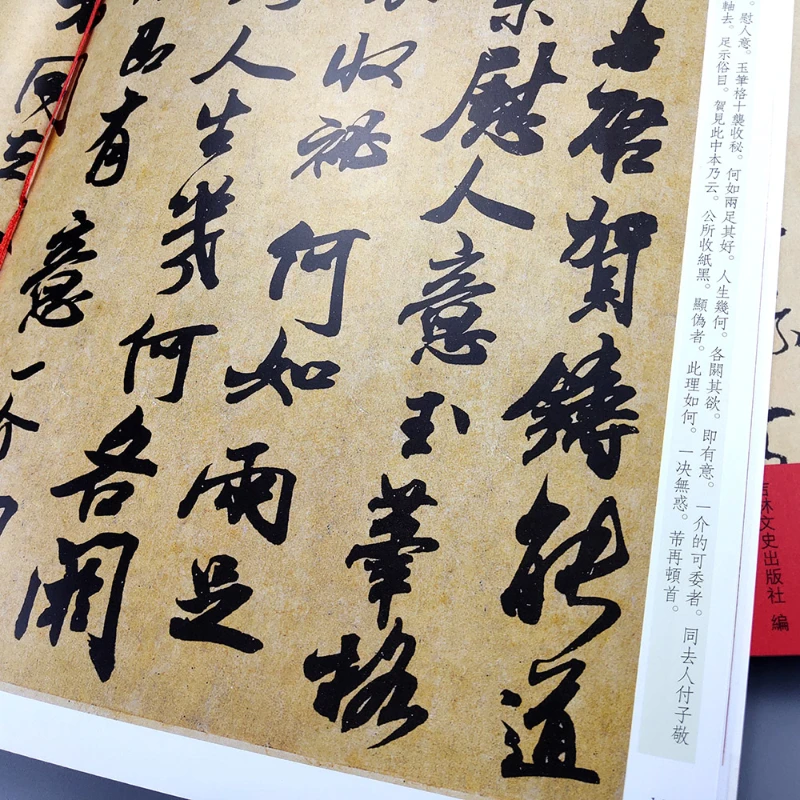 慰人意。玉筆格十襲收秘。何如兩足其好。人生幾何。各闕其欲。即有意。一介的可委者。同去人付子敬
軸去。足示俗目。賀見此中本乃云。公所收紙黑。顯偽者。此理如何。一决無惑。芾再頓首。
賀鑄能道
慰人意玉筆格
收祕何如兩足
人生幾何各闕
有意一介
吉林文史出版社 編